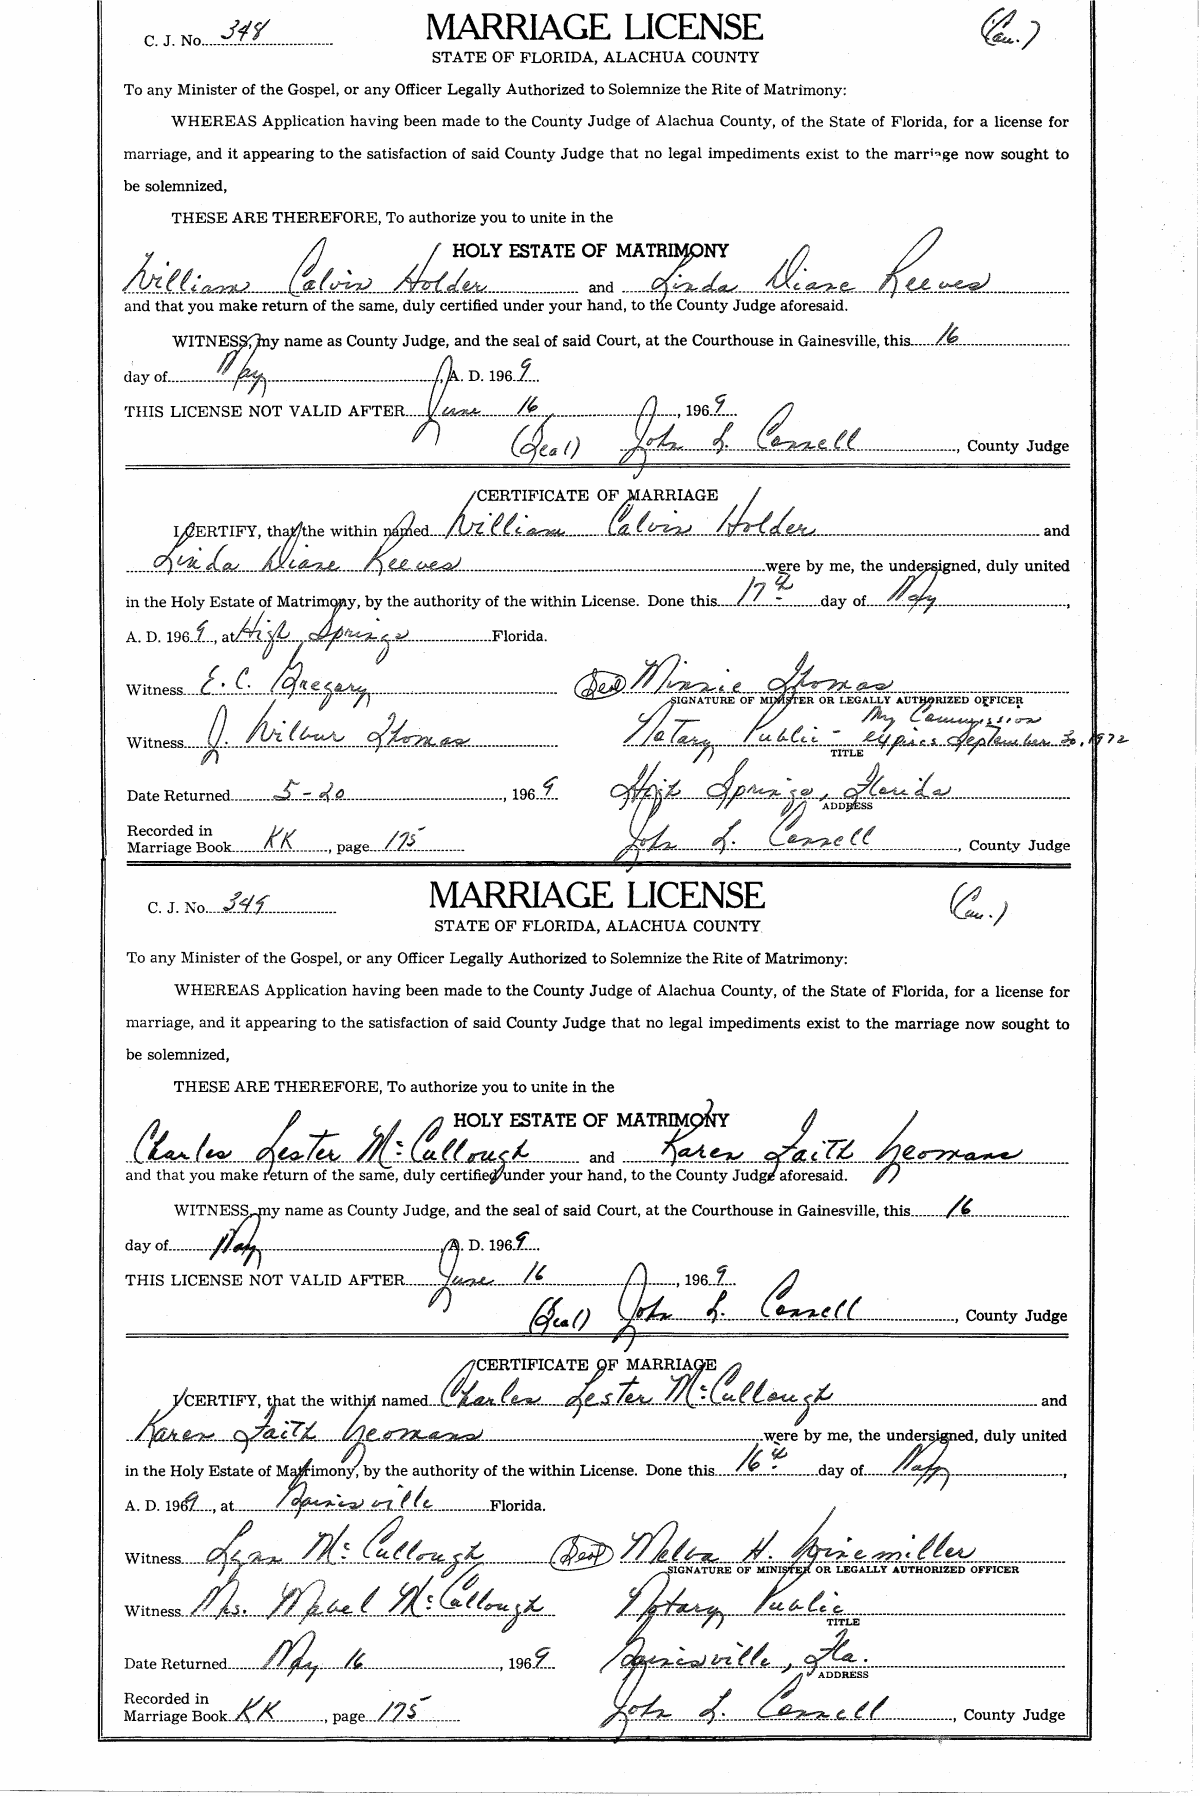 C. J. No. 348 MARRIAGE LICENSE (Cau.)
STATE OF FLORIDA, ALACHUA COUNTY
To any Minister of the Gospel, or any Officer Legally Authorized to Solemnize the Rite of Matrimony:
WHEREAS Application having been made to the County Judge of Alachua County, of the State of Florida, for a license for
marriage, and it appearing to the satisfaction of said County Judge that no legal impediments exist to the marriage now sought to
be solemnized,
THESE ARE THEREFORE, To authorize you to unite in the
HOLY ESTATE OF MATRIMONY
William Calvin Holder and Linda Diane Reeves
and that you make return of the same, duly certified under your hand, to the County Judge aforesaid.
WITNESS, my name as County Judge, and the seal of said Court, at the Courthouse in Gainesville, this 16
day of May, A. D. 1969
THIS LICENSE NOT VALID AFTER June 16, 1969
(Seal) John L. Connell, County Judge
CERTIFICATE OF MARRIAGE
I CERTIFY, that the within named William Calvin Holder and
Linda Diane Reeves were by me, the undersigned, duly united
in the Holy Estate of Matrimony, by the authority of the within License. Done this 17th day of May,
A. D. 1969, at High Springs Florida.
Witness E. C. Gregory (Seal) Minnie Thomas
SIGNATURE OF MINISTER OR LEGALLY AUTHORIZED OFFICER
My Commission
Witness J. Wilbur Thomas Notary Public - expires September 30, 1972
TITLE
Date Returned 5-20, 1969 High Springs, Florida
ADDRESS
Recorded in
Marriage Book KK, page 175 John L. Connell, County Judge
C. J. No. 349 MARRIAGE LICENSE (Cau.)
STATE OF FLORIDA, ALACHUA COUNTY
To any Minister of the Gospel, or any Officer Legally Authorized to Solemnize the Rite of Matrimony:
WHEREAS Application having been made to the County Judge of Alachua County, of the State of Florida, for a license for
marriage, and it appearing to the satisfaction of said County Judge that no legal impediments exist to the marriage now sought to
be solemnized,
THESE ARE THEREFORE, To authorize you to unite in the
HOLY ESTATE OF MATRIMONY
Charles Lester McCullough and Karen Faith Yeomans
and that you make return of the same, duly certified under your hand, to the County Judge aforesaid.
WITNESS, my name as County Judge, and the seal of said Court, at the Courthouse in Gainesville, this 16
day of May, A. D. 1969
THIS LICENSE NOT VALID AFTER June 16, 1969
(Seal) John L. Connell, County Judge
CERTIFICATE OF MARRIAGE
I CERTIFY, that the within named Charles Lester McCullough and
Karen Faith Yeomans were by me, the undersigned, duly united
in the Holy Estate of Matrimony, by the authority of the within License. Done this 16th day of May,
A. D. 1969, at Gainesville Florida.
Witness Lynn McCullough (Seal) Melva H. Winemiller
SIGNATURE OF MINISTER OR LEGALLY AUTHORIZED OFFICER
Witness Mrs. Mabel McCullough Notary Public
TITLE
Date Returned May 16, 1969 Gainesville, Fla.
ADDRESS
Recorded in
Marriage Book KK, page 175 John L. Connell, County Judge